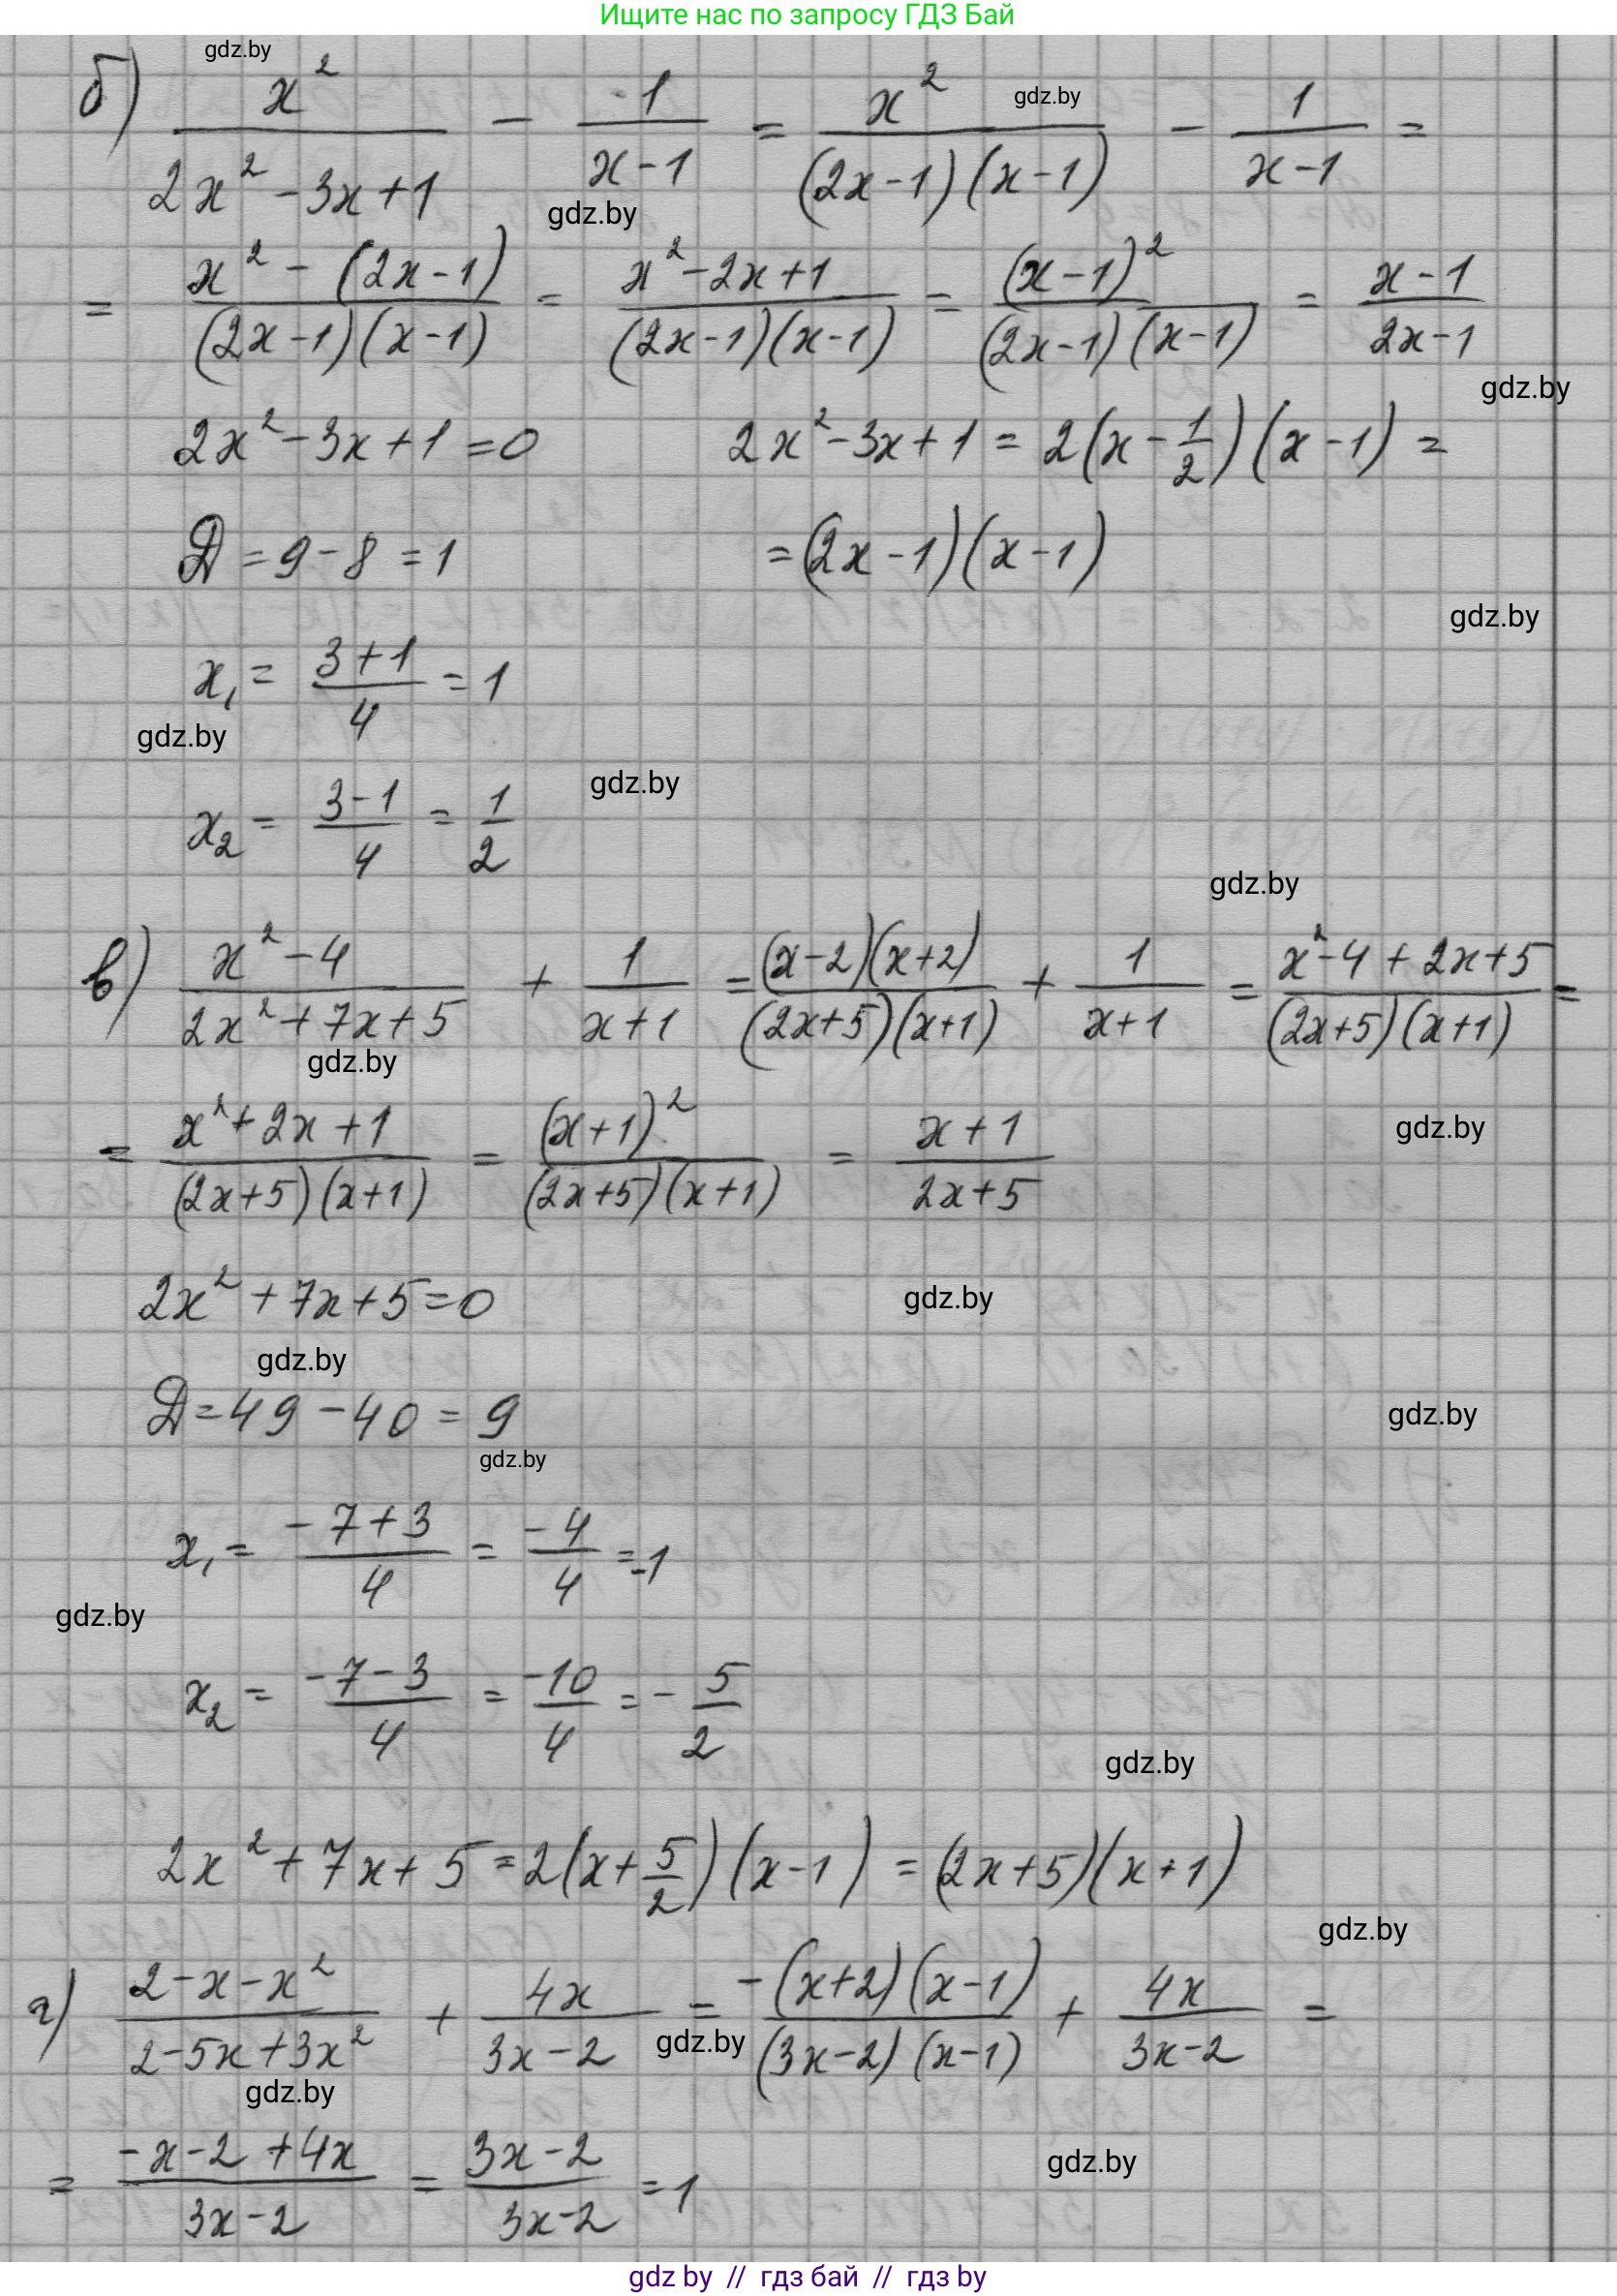 Ищите нас по запросу ГДЗ Бай
gdz.by
б) x²/(2x²-3x+1) - 1/(x-1) = x²/((2x-1)(x-1)) - 1/(x-1) =
gdz.by
gdz.by
= (x²-(2x-1))/((2x-1)(x-1)) = (x²-2x+1)/((2x-1)(x-1)) = (x-1)²/((2x-1)(x-1)) = (x-1)/(2x-1)
gdz.by
2x²-3x+1=0 2x²-3x+1 = 2(x-1/2)(x-1) =
Д=9-8=1 =(2x-1)(x-1)
gdz.by
x₁ = (3+1)/4 = 1
gdz.by
gdz.by
x₂ = (3-1)/4 = 1/2
gdz.by
в) (x²-4)/(2x²+7x+5) + 1/(x+1) = ((x-2)(x+2))/((2x+5)(x+1)) + 1/(x+1) = (x²-4+2x+5)/((2x+5)(x+1)) =
gdz.by
gdz.by
= (x²+2x+1)/((2x+5)(x+1)) = (x+1)²/((2x+5)(x+1)) = (x+1)/(2x+5)
2x²+7x+5=0
gdz.by
gdz.by
Д=49-40=9
gdz.by
gdz.by
x₁ = (-7+3)/4 = -4/4 = -1
gdz.by
x₂ = (-7-3)/4 = -10/4 = -5/2
gdz.by
2x²+7x+5=2(x+5/2)(x-1) = (2x+5)(x+1)
gdz.by
г) (2-x-x²)/(2-5x+3x²) + 4x/(3x-2) = (-(x+2)(x-1))/((3x-2)(x-1)) + 4x/(3x-2) =
gdz.by
gdz.by
= (-x-2+4x)/(3x-2) = (3x-2)/(3x-2) = 1
gdz.by
gdz by // гдз бай // гдз by